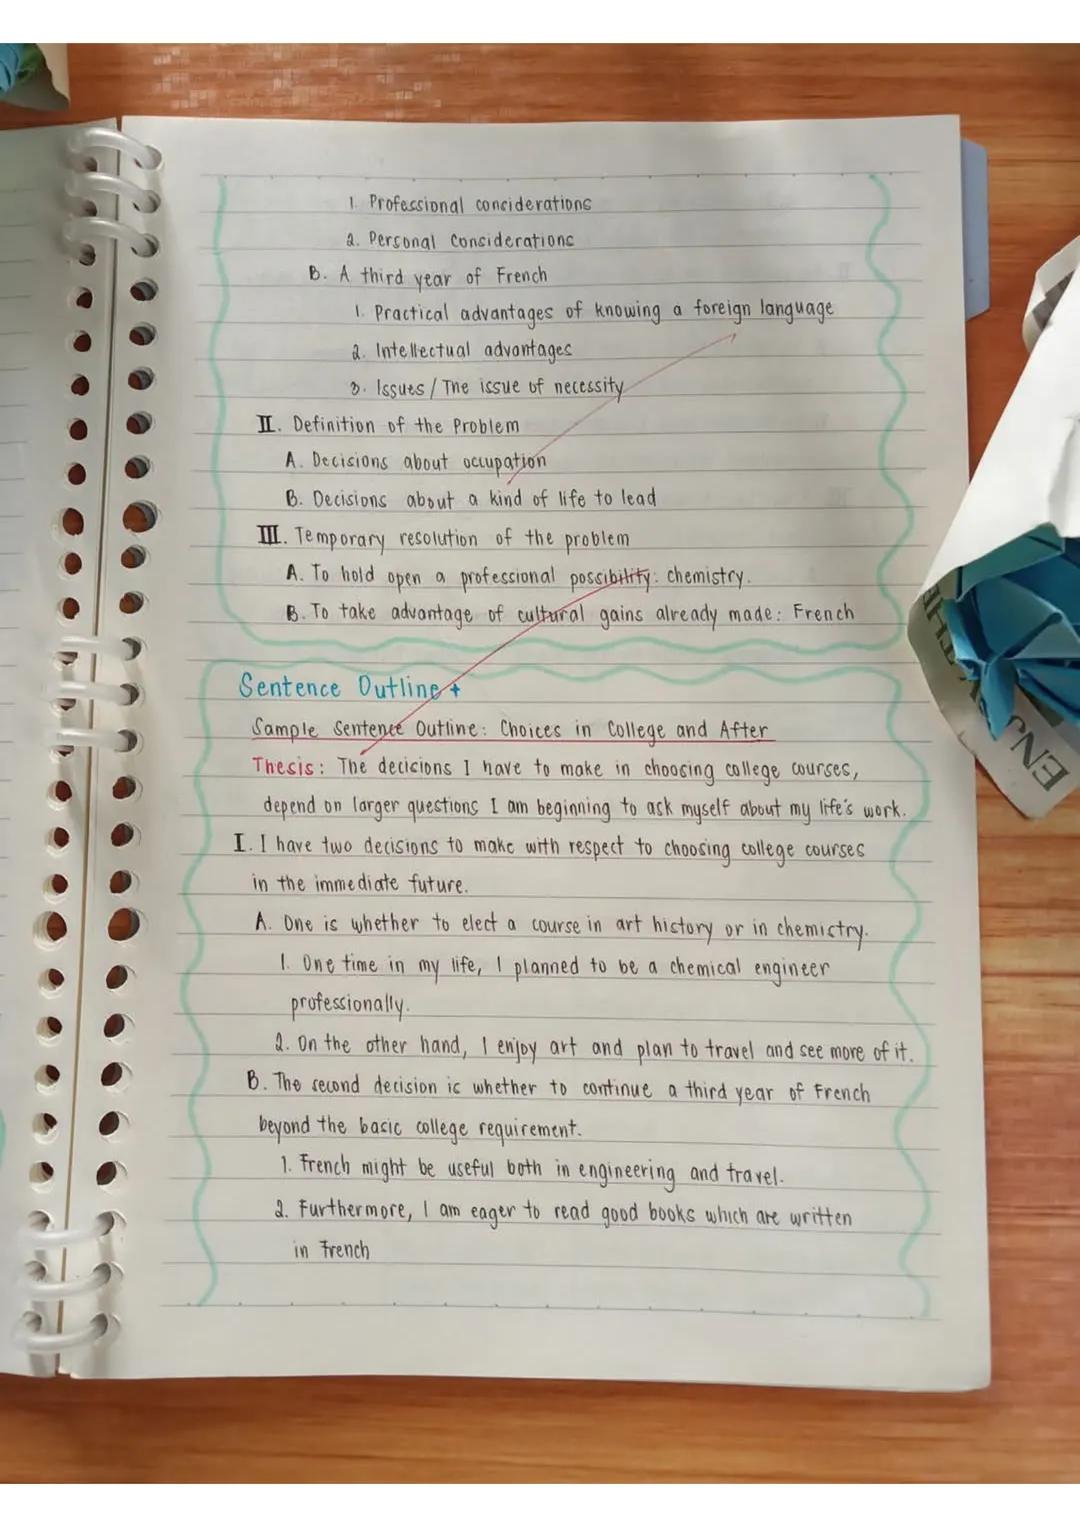 1. Professional conciderations
2. Personal Considerations
B. A third year of French
1. Practical advantages of knowing a foreign language
2. Intellectual advantages
3. Issues / The issue of necessity
II. Definition of the Problem
A. Decisions about occupation
B. Decisions about a kind of life to lead
III. Temporary resolution of the problem
A. To hold open a professional possibility: chemistry.
B. To take advantage of cultural gains already made: French
Sentence Outline +
Sample Sentence Outline: Choices in College and After
Thesis: The decisions I have to make in choosing college courses,
depend on larger questions I am beginning to ask myself about my life's work.
I. I have two decisions to make with respect to choosing college courses
in the immediate future.
A. One is whether to elect a course in art history or in chemistry.
1. One time in my life, I planned to be a chemical engineer
professionally.
2. On the other hand, I enjoy art and plan to travel and see more of it.
B. The second decision is whether to continue a third year of French
beyond the basic college requirement.
1. French might be useful both in engineering and travel.
2. Furthermore, I am eager to read good books which are written
in French